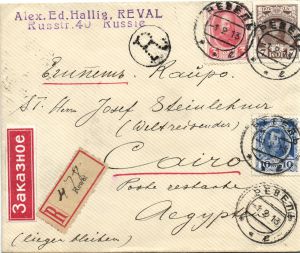 Alex. Ed. Hallig, REVAL
Russtr. 40 Russie
R
РЕВЕЛЬ
1 9 13
Египетъ. Каиро.
St. Herr Josef Steinlehner
(Weltreisender)
Заказное
Cairo
R
Reval
Poste restante
РЕВЕЛЬ
1 9 13
Aegypt
(liegen bleiben)